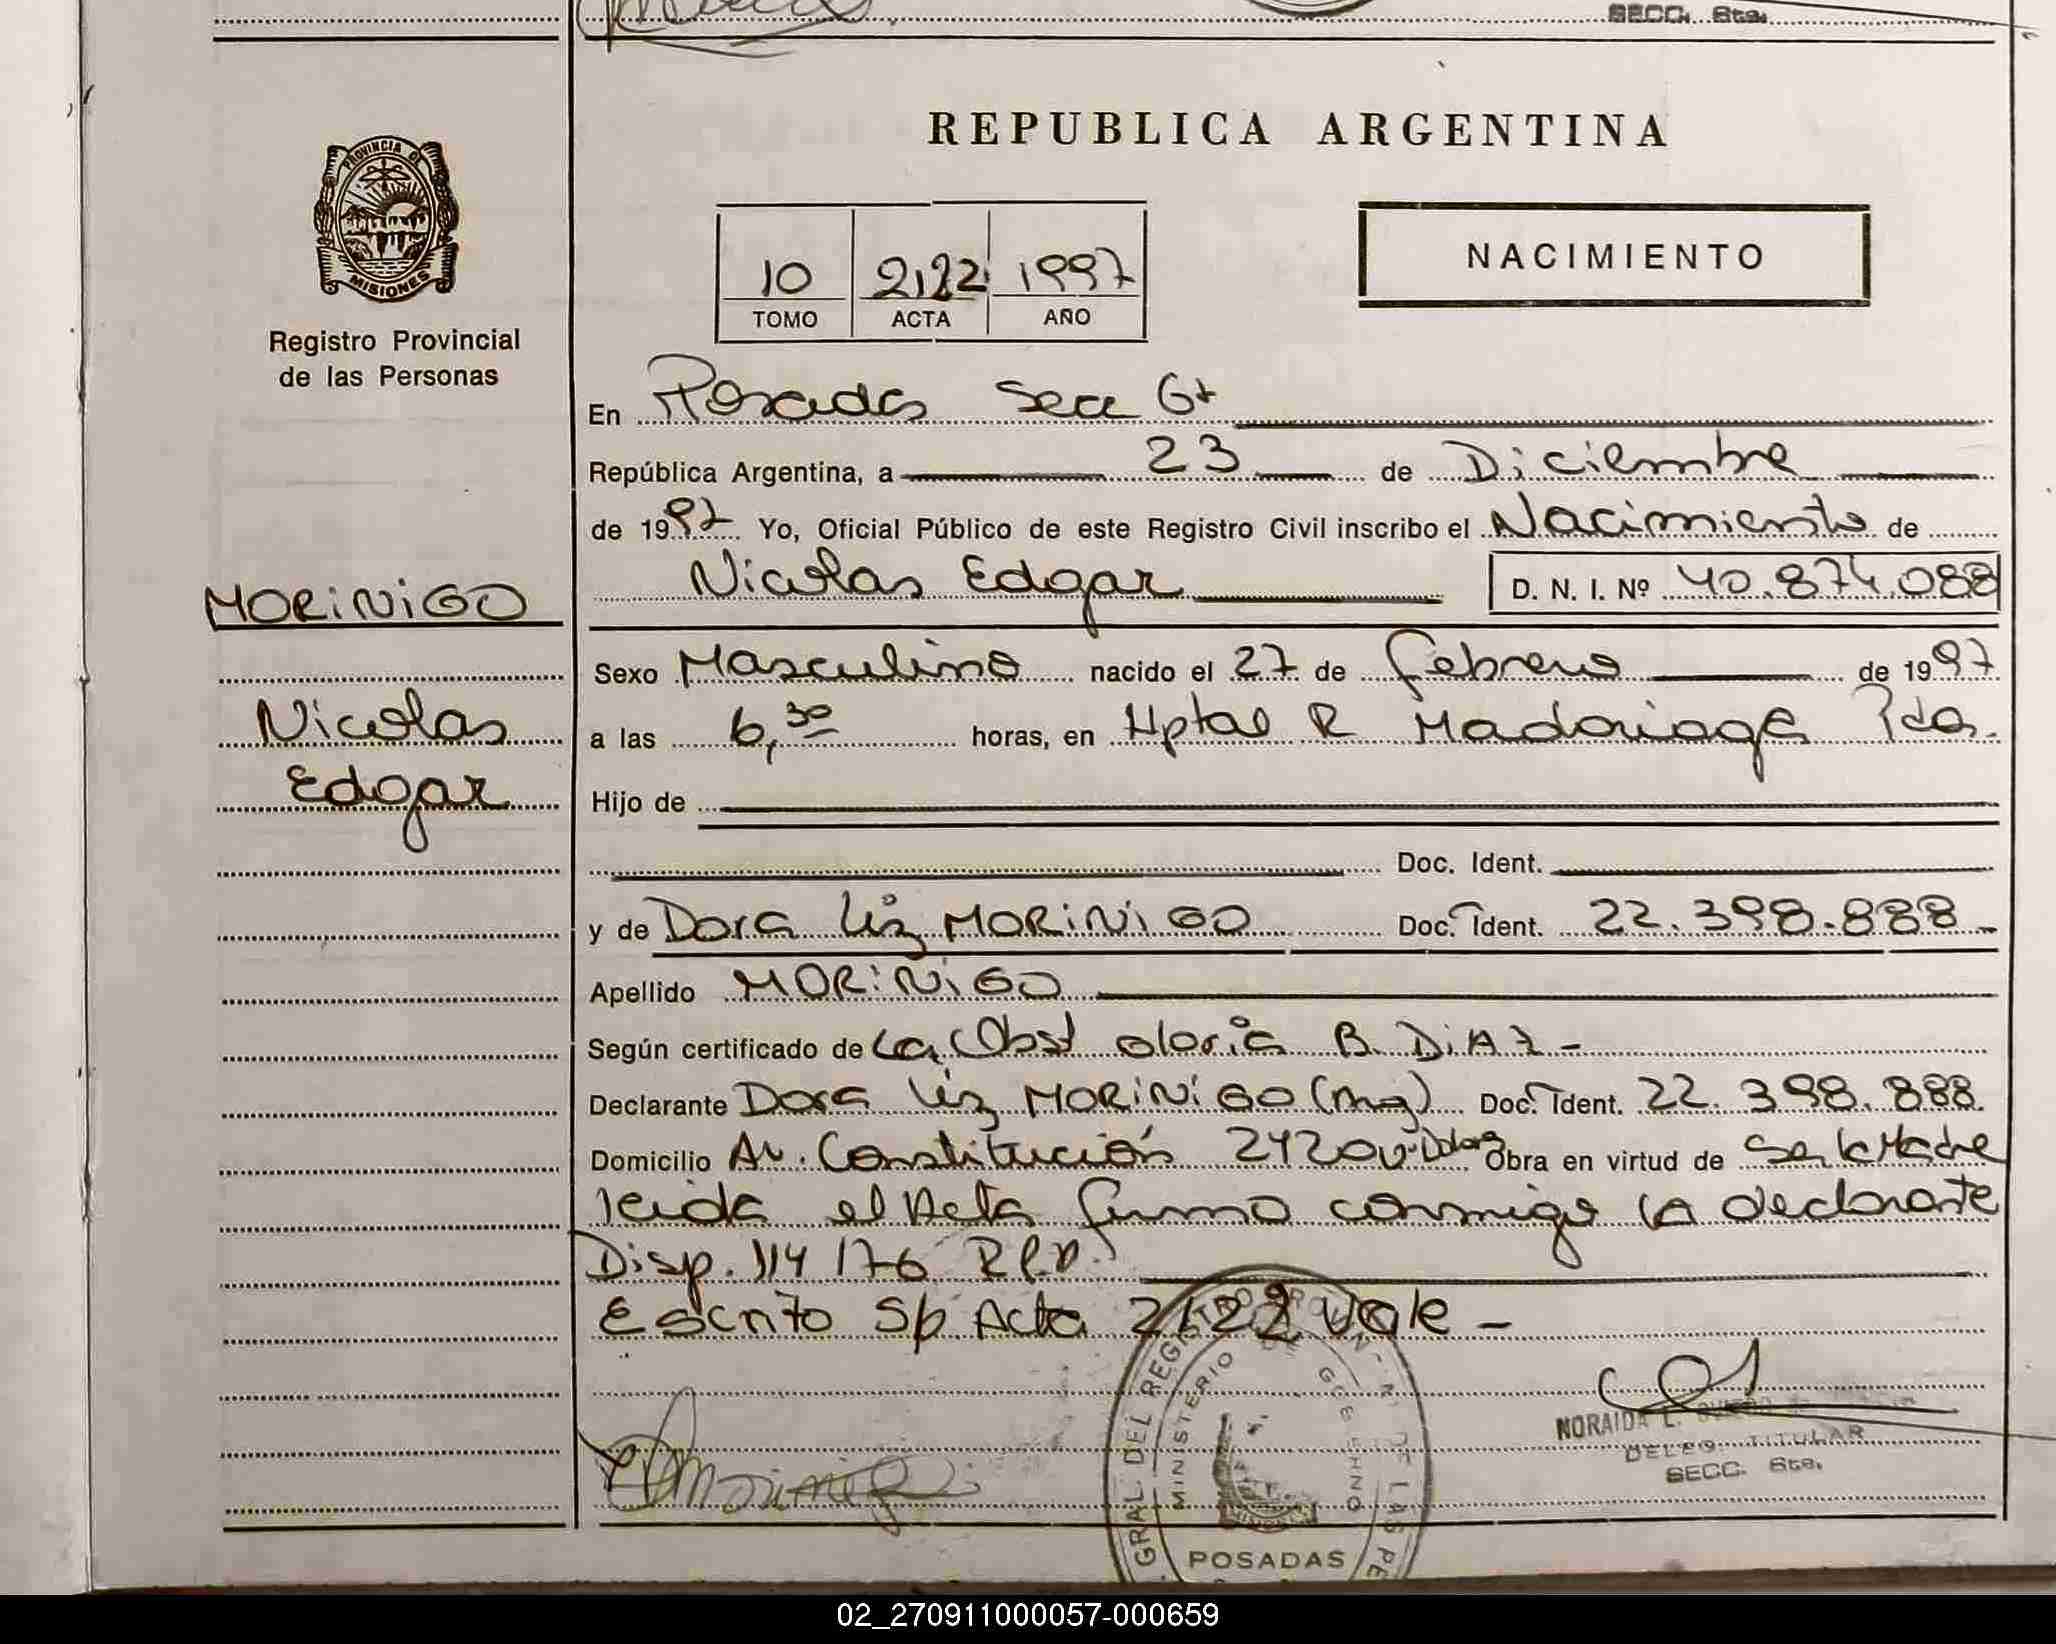 SECC. 6ta.
REPUBLICA ARGENTINA
PROVINCIA DE
MISIONES
Registro Provincial
de las Personas
10 2122 1997
TOMO ACTA AÑO
NACIMIENTO
En Posadas Secc 6ta
República Argentina, a 23 de Diciembre
de 1997 Yo, Oficial Público de este Registro Civil inscribo el Nacimiento de
Nicolas Edgar D. N. I. Nº 40.874.088
MORINIGO
Nicolas
Edgar
Sexo Masculino nacido el 27 de febrero de 1997
a las 6,30 horas, en Hptal R Madariaga Pdas.
Hijo de
Doc. Ident.
y de Dora Liz MORINIGO Doc. Ident. 22.398.888
Apellido MORINIGO
Según certificado de La Obst Gloria B. DIAZ -
Declarante Dora Liz MORINIGO (mg) Doc. Ident. 22.398.888
Domicilio Av. Constitución 2420 Obra en virtud de Ser la Madre
leida el Acta firma conmigo la declarante
Disp. 114/76 R.P.P.
Escrito S/p Acta 2122 Vale -
NORAIDA L.
DELEG. TITULAR
SECC. 6ta.
GRAL DEL REGISTRO PROVIN DE LAS PE
MINISTERIO DE GOBIERNO
POSADAS
02_270911000057-000659